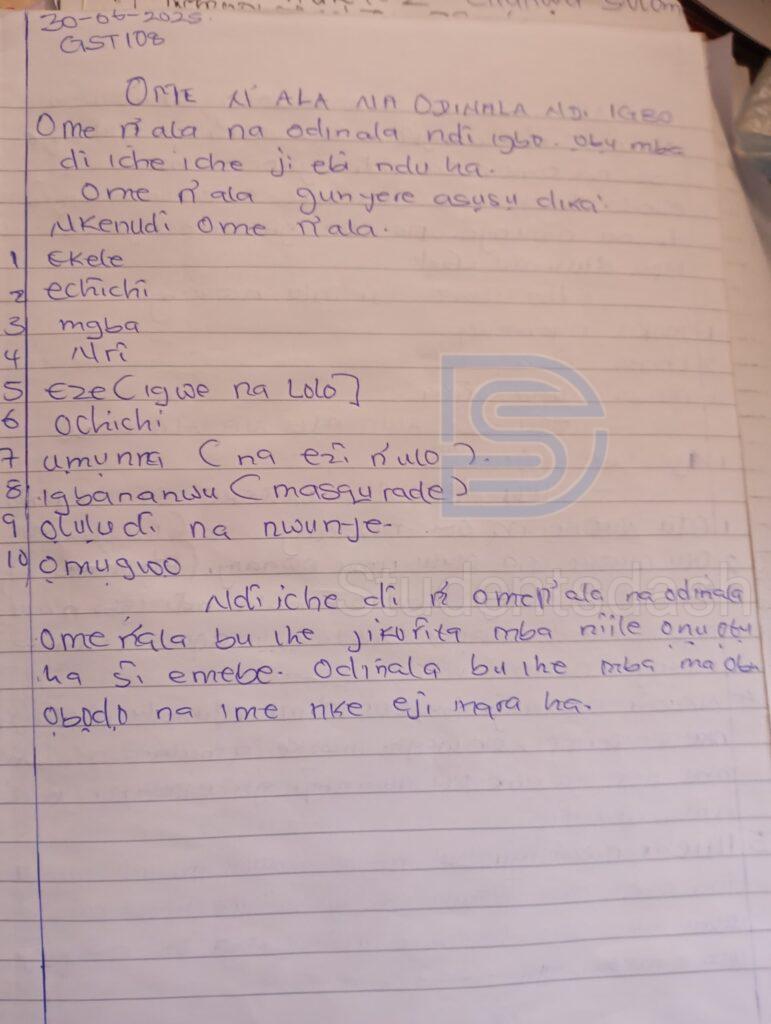 30-06-2025
GST108
OME N'ALA NA ODINALA NDI IGBO
Ome n'ala na odinala ndi igbo. ọbụ mba
di iche iche ji ebi ndu ha.
Ome n'ala gunyere asụsụ dika:
Nkenudi Ome n'ala.
1 Ekele
2 echichi
3 mgba
4 Nri
5 Eze (igwe na Lolo]
6 Ochichi
7 ụmụnna (na ezi n'ulo).
8 Igbananwu (masqurade)
9 ọlụlụ di na nwunye.
10 ọmụgwo
Ndi iche di n' omen'ala na odinala
Ome n'ala bu ihe jikorita mba niile ọnụ otu
ha si emebe. Odinala bu ihe mba ma
ọbọdọ na ime nke eji mara ha.
Studentsdash